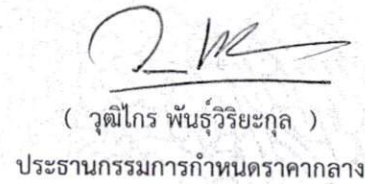 ( วุฒิไกร พันธุ์วิริยะกุล )
ประธานกรรมการกำหนดราคากลาง